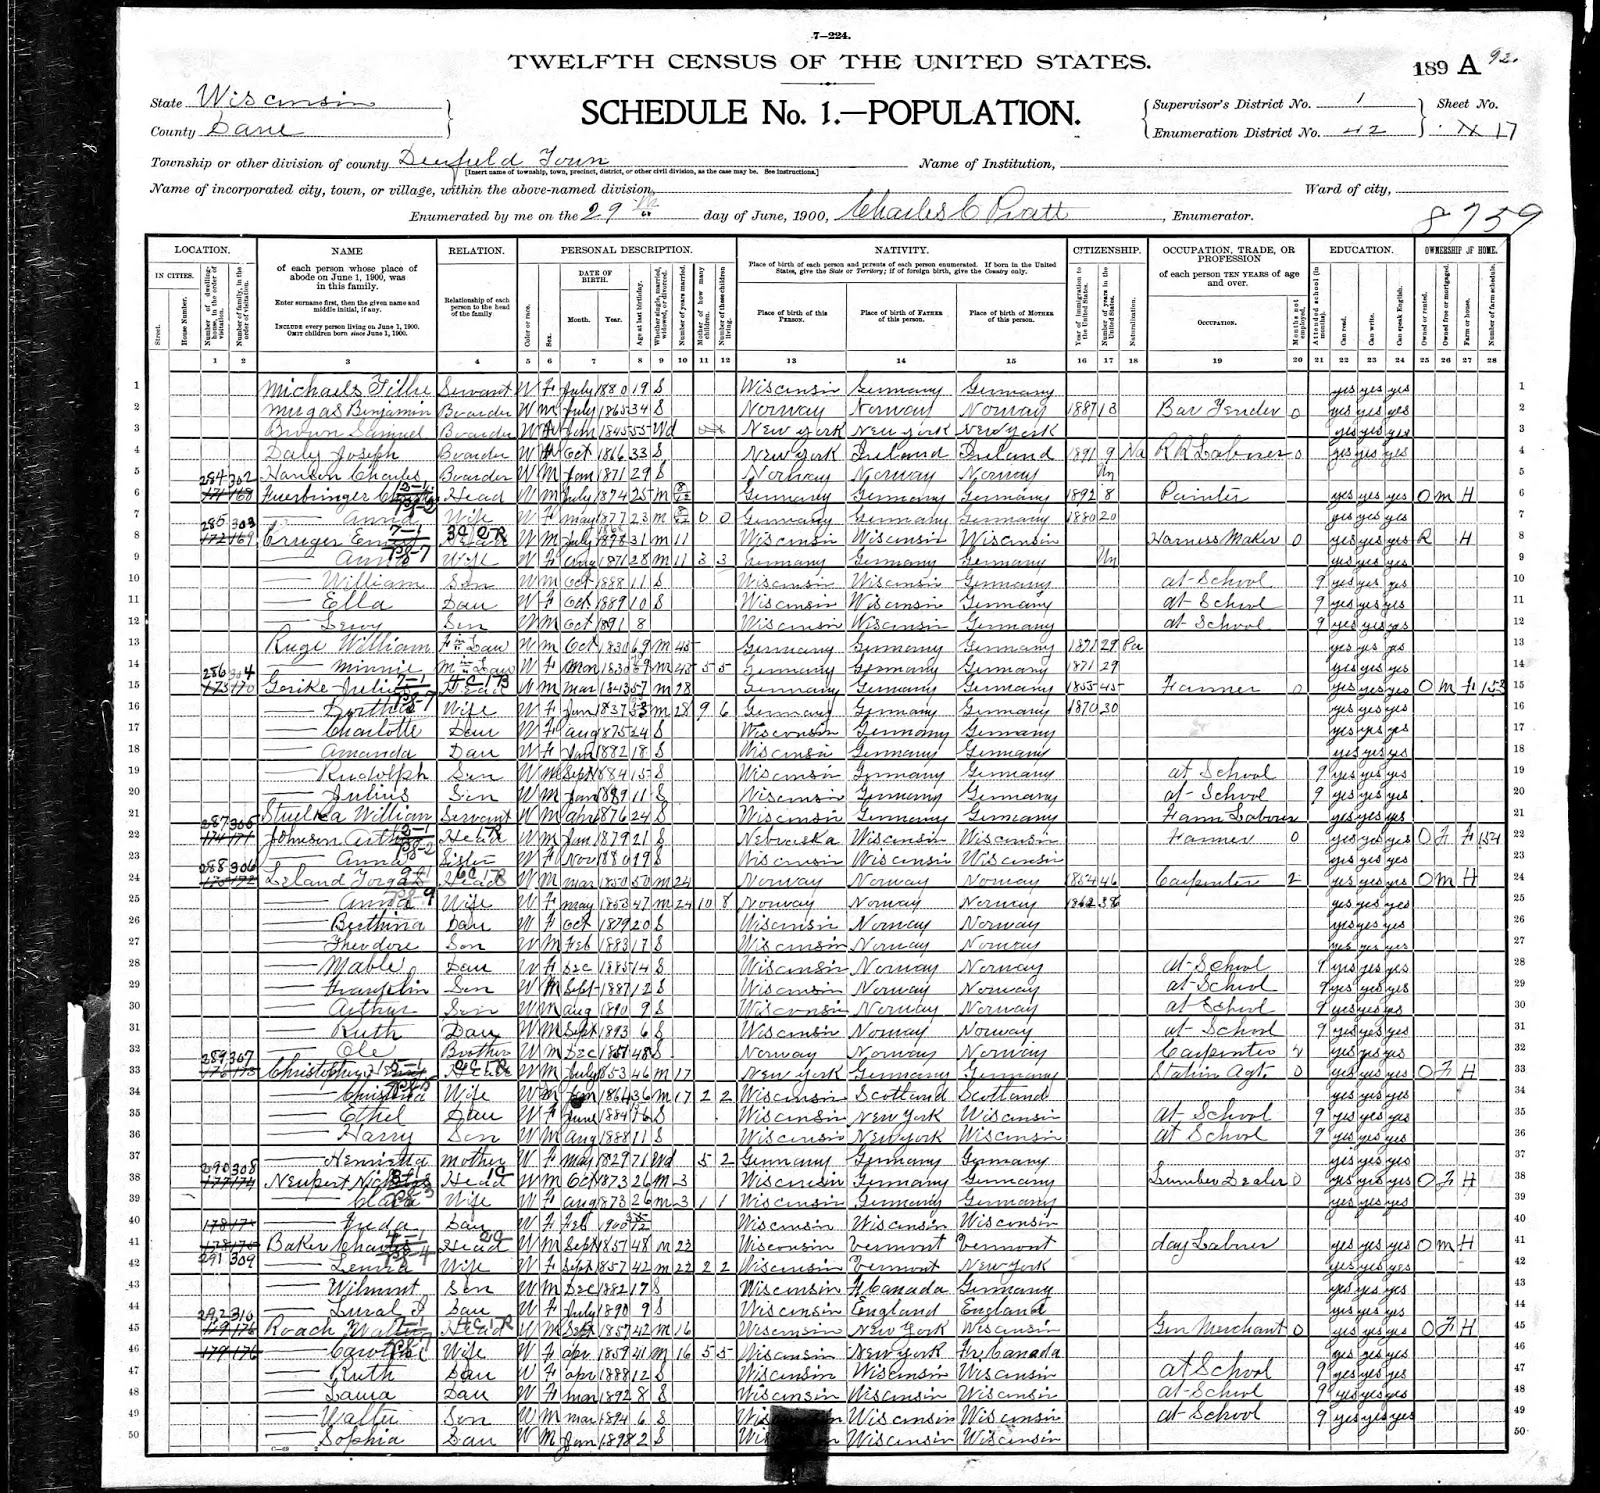 7—224.
TWELFTH CENSUS OF THE UNITED STATES.
189 A 92.
State Wisconsin
County Dane
SCHEDULE No. 1.—POPULATION.
Supervisor's District No. 1
Enumeration District No. 42
Sheet No.
17
Township or other division of county Deerfield Town
[Insert name of township, town, precinct, district, or other civil division, as the case may be. See instructions.]
Name of Institution,
Name of incorporated city, town, or village, within the above-named division,
Ward of city,
Enumerated by me on the 29th day of June, 1900, Charles C Pratt, Enumerator.
8759
LOCATION. NAME RELATION. PERSONAL DESCRIPTION. NATIVITY. CITIZENSHIP. OCCUPATION, TRADE, OR PROFESSION EDUCATION. OWNERSHIP OF HOME.
IN CITIES. Street. House Number. Number of dwelling-house, in the order of visitation. Number of family, in the order of visitation.
of each person whose place of abode on June 1, 1900, was in this family.
Enter surname first, then the given name and middle initial, if any.
INCLUDE every person living on June 1, 1900.
OMIT children born since June 1, 1900.
Relationship of each person to the head of the family
Color or race. Sex. DATE OF BIRTH. Month. Year. Age at last birthday. Whether single, married, widowed, or divorced. Number of years married. Mother of how many children. Number of these children living.
Place of birth of each person and parents of each person enumerated. If born in the United States, give the State or Territory; if of foreign birth, give the Country only.
Place of birth of this PERSON. Place of birth of FATHER of this person. Place of birth of MOTHER of this person.
Year of immigration to the United States. Number of years in the United States. Naturalization.
of each person TEN YEARS of age and over.
OCCUPATION. Months not employed.
Attended school (in months). Can read. Can write. Can speak English.
Owned or rented. Owned free or mortgaged. Farm or house. Number of farm schedule.
1 2 3 4 5 6 7 8 9 10 11 12 13 14 15 16 17 18 19 20 21 22 23 24 25 26 27 28
1 Michaels Tillie Servant W F July 1880 19 S Wisconsin Germany Germany yes yes yes 1
2 Mugas Benjamin Boarder W M July 1865 34 S Norway Norway Norway 1887 13 Bar Tender 0 yes yes yes 2
3 Brown Samuel Boarder W M Jan 1845 55 Wd New York New York New York yes yes yes 3
4 Daly Joseph Boarder W M Oct 1866 33 S New York Ireland Ireland 1891 9 Na R R Laborer 0 yes yes yes 4
5 Hanson Charles Boarder W M Jan 1871 29 S Norway Norway Norway Un 5
6 284 302 Head W M July 1874 25 M Germany Germany Germany 1892 8 Painter yes yes yes O M H 6
7 — Anna Wife W F May 1877 23 M 0 0 Germany Germany Germany 1880 20 yes yes yes 7
8 285 303 Cruger Ernest Head W M July 31 M 11 Wisconsin Wisconsin Wisconsin Harness Maker 0 yes yes yes R H 8
9 — Wife W F Aug 1871 28 M 11 3 3 Germany Germany Germany Un yes yes yes 9
10 — William Son W M Oct 1888 11 S Wisconsin Wisconsin Germany at School 9 yes yes yes 10
11 — Ella Dau W F Oct 1889 10 S Wisconsin Wisconsin Germany at School 9 yes yes yes 11
12 — Leroy Son W M Oct 1891 8 Wisconsin Wisconsin Germany at School 9 yes yes yes 12
13 Ruge William F in Law W M Oct 1830 69 M 45 Germany Germany Germany 1871 29 Pa yes yes yes 13
14 — Minnie M in Law W F Mar 1830 69 M 45 5 5 Germany Germany Germany 1871 29 yes yes yes 14
15 286 304 Gerike Julius Head W M Mar 1843 57 M 28 Germany Germany Germany 1855 45 Farmer 0 yes yes yes O M F 153 15
16 — Dorthea Wife W F Jun 1837 M 28 9 6 Germany Germany Germany 1870 30 yes yes yes 16
17 — Charlotte Dau W F Aug 1875 24 S Wisconsin Germany Germany yes yes yes 17
18 — Amanda Dau W F Jan 1882 18 S Wisconsin Germany Germany yes yes yes 18
19 — Rudolph Son W M Sept 1884 15 S Wisconsin Germany Germany at School 9 yes yes yes 19
20 — Julius Son W M Jan 1889 11 S Wisconsin Germany Germany at School 9 yes yes yes 20
21 Stuelka William Servant W M Apr 1876 24 S Wisconsin Germany Germany Farm Laborer yes yes yes 21
22 287 305 Johnson Arthur Head W M Jun 1879 21 S Nebraska Wisconsin Wisconsin Farmer 0 yes yes yes O F F 154 22
23 — Anna Sister W F Nov 1880 19 S Wisconsin Wisconsin Wisconsin yes yes yes 23
24 288 306 Leland Head W M Mar 1850 50 M 24 Norway Norway Norway 1854 46 Carpenter 2 yes yes yes O M H 24
25 — Anna Wife W F May 1853 47 M 24 10 8 Norway Norway Norway 1862 38 yes yes yes 25
26 — Berthina Dau W F Oct 1879 20 S Wisconsin Norway Norway yes yes yes 26
27 — Theodore Son W M Feb 1883 17 S Wisconsin Norway Norway yes yes yes 27
28 — Mable Dau W F Dec 1885 14 S Wisconsin Norway Norway at School 9 yes yes yes 28
29 — Franklin Son W M Sept 1887 12 S Wisconsin Norway Norway at School 9 yes yes yes 29
30 — Arthur Son W M Aug 1890 9 S Wisconsin Norway Norway at School 9 yes yes yes 30
31 — Ruth Dau W M Sept 1893 6 S Wisconsin Norway Norway at School 9 yes yes yes 31
32 — Ole Brother W M Dec 1851 48 S Norway Norway Norway Carpenter 2 yes yes yes 32
33 289 307 Head W M July 1853 46 M 17 New York Germany Germany Station Agt. 0 yes yes yes O F H 33
34 — Christina Wife W Jan 1864 36 M 17 2 2 Wisconsin Scotland Scotland yes yes yes 34
35 — Ethel Dau W F June 1884 S Wisconsin New York Wisconsin at School 9 yes yes yes 35
36 — Harry Son W M Aug 1888 11 S Wisconsin New York Wisconsin at School 9 yes yes yes 36
37 — Henrietta Mother W F May 1829 71 Wd 5 2 Germany Germany Germany yes yes yes 37
38 290 308 Neupert Nicholas Head W M Oct 1873 26 M 3 Wisconsin Germany Germany Lumber Dealer 0 yes yes yes O F H 38
39 — Clara Wife W F Aug 1873 26 M 3 1 1 Wisconsin Germany Germany yes yes yes 39
40 — Freda Dau W F Feb 1900 Wisconsin Wisconsin Wisconsin 40
41 Baker Charles Head W M Sept 1851 48 M 22 Wisconsin Vermont Vermont day Laborer yes yes yes O M H 41
42 291 309 — Wife W F Sept 1857 42 M 22 2 2 Wisconsin Vermont New York yes yes yes 42
43 — Wilmunt Son W M Dec 1882 17 S Wisconsin F Canada Germany yes yes yes 43
44 — Lural F Dau W F July 1890 9 S Wisconsin England England yes yes yes 44
45 292 310 Roach Walter Head W M Sept 1857 42 M 16 Wisconsin New York Wisconsin Gen Merchant 0 yes yes yes O F H 45
46 — Wife W F Apr 1859 41 M 16 5 5 Wisconsin New York Fr Canada yes yes yes 46
47 — Ruth Dau W F Apr 1888 12 S Wisconsin Wisconsin Wisconsin at School 9 yes yes yes 47
48 — Laura Dau W F Mar 1892 8 S Wisconsin Wisconsin Wisconsin at School 9 yes yes yes 48
49 — Walter Son W M Mar 1894 6 S Wisconsin Wisconsin at School 9 yes yes yes 49
50 — Sophia Dau W M Jan 1898 2 S Wisconsin Wisconsin 50